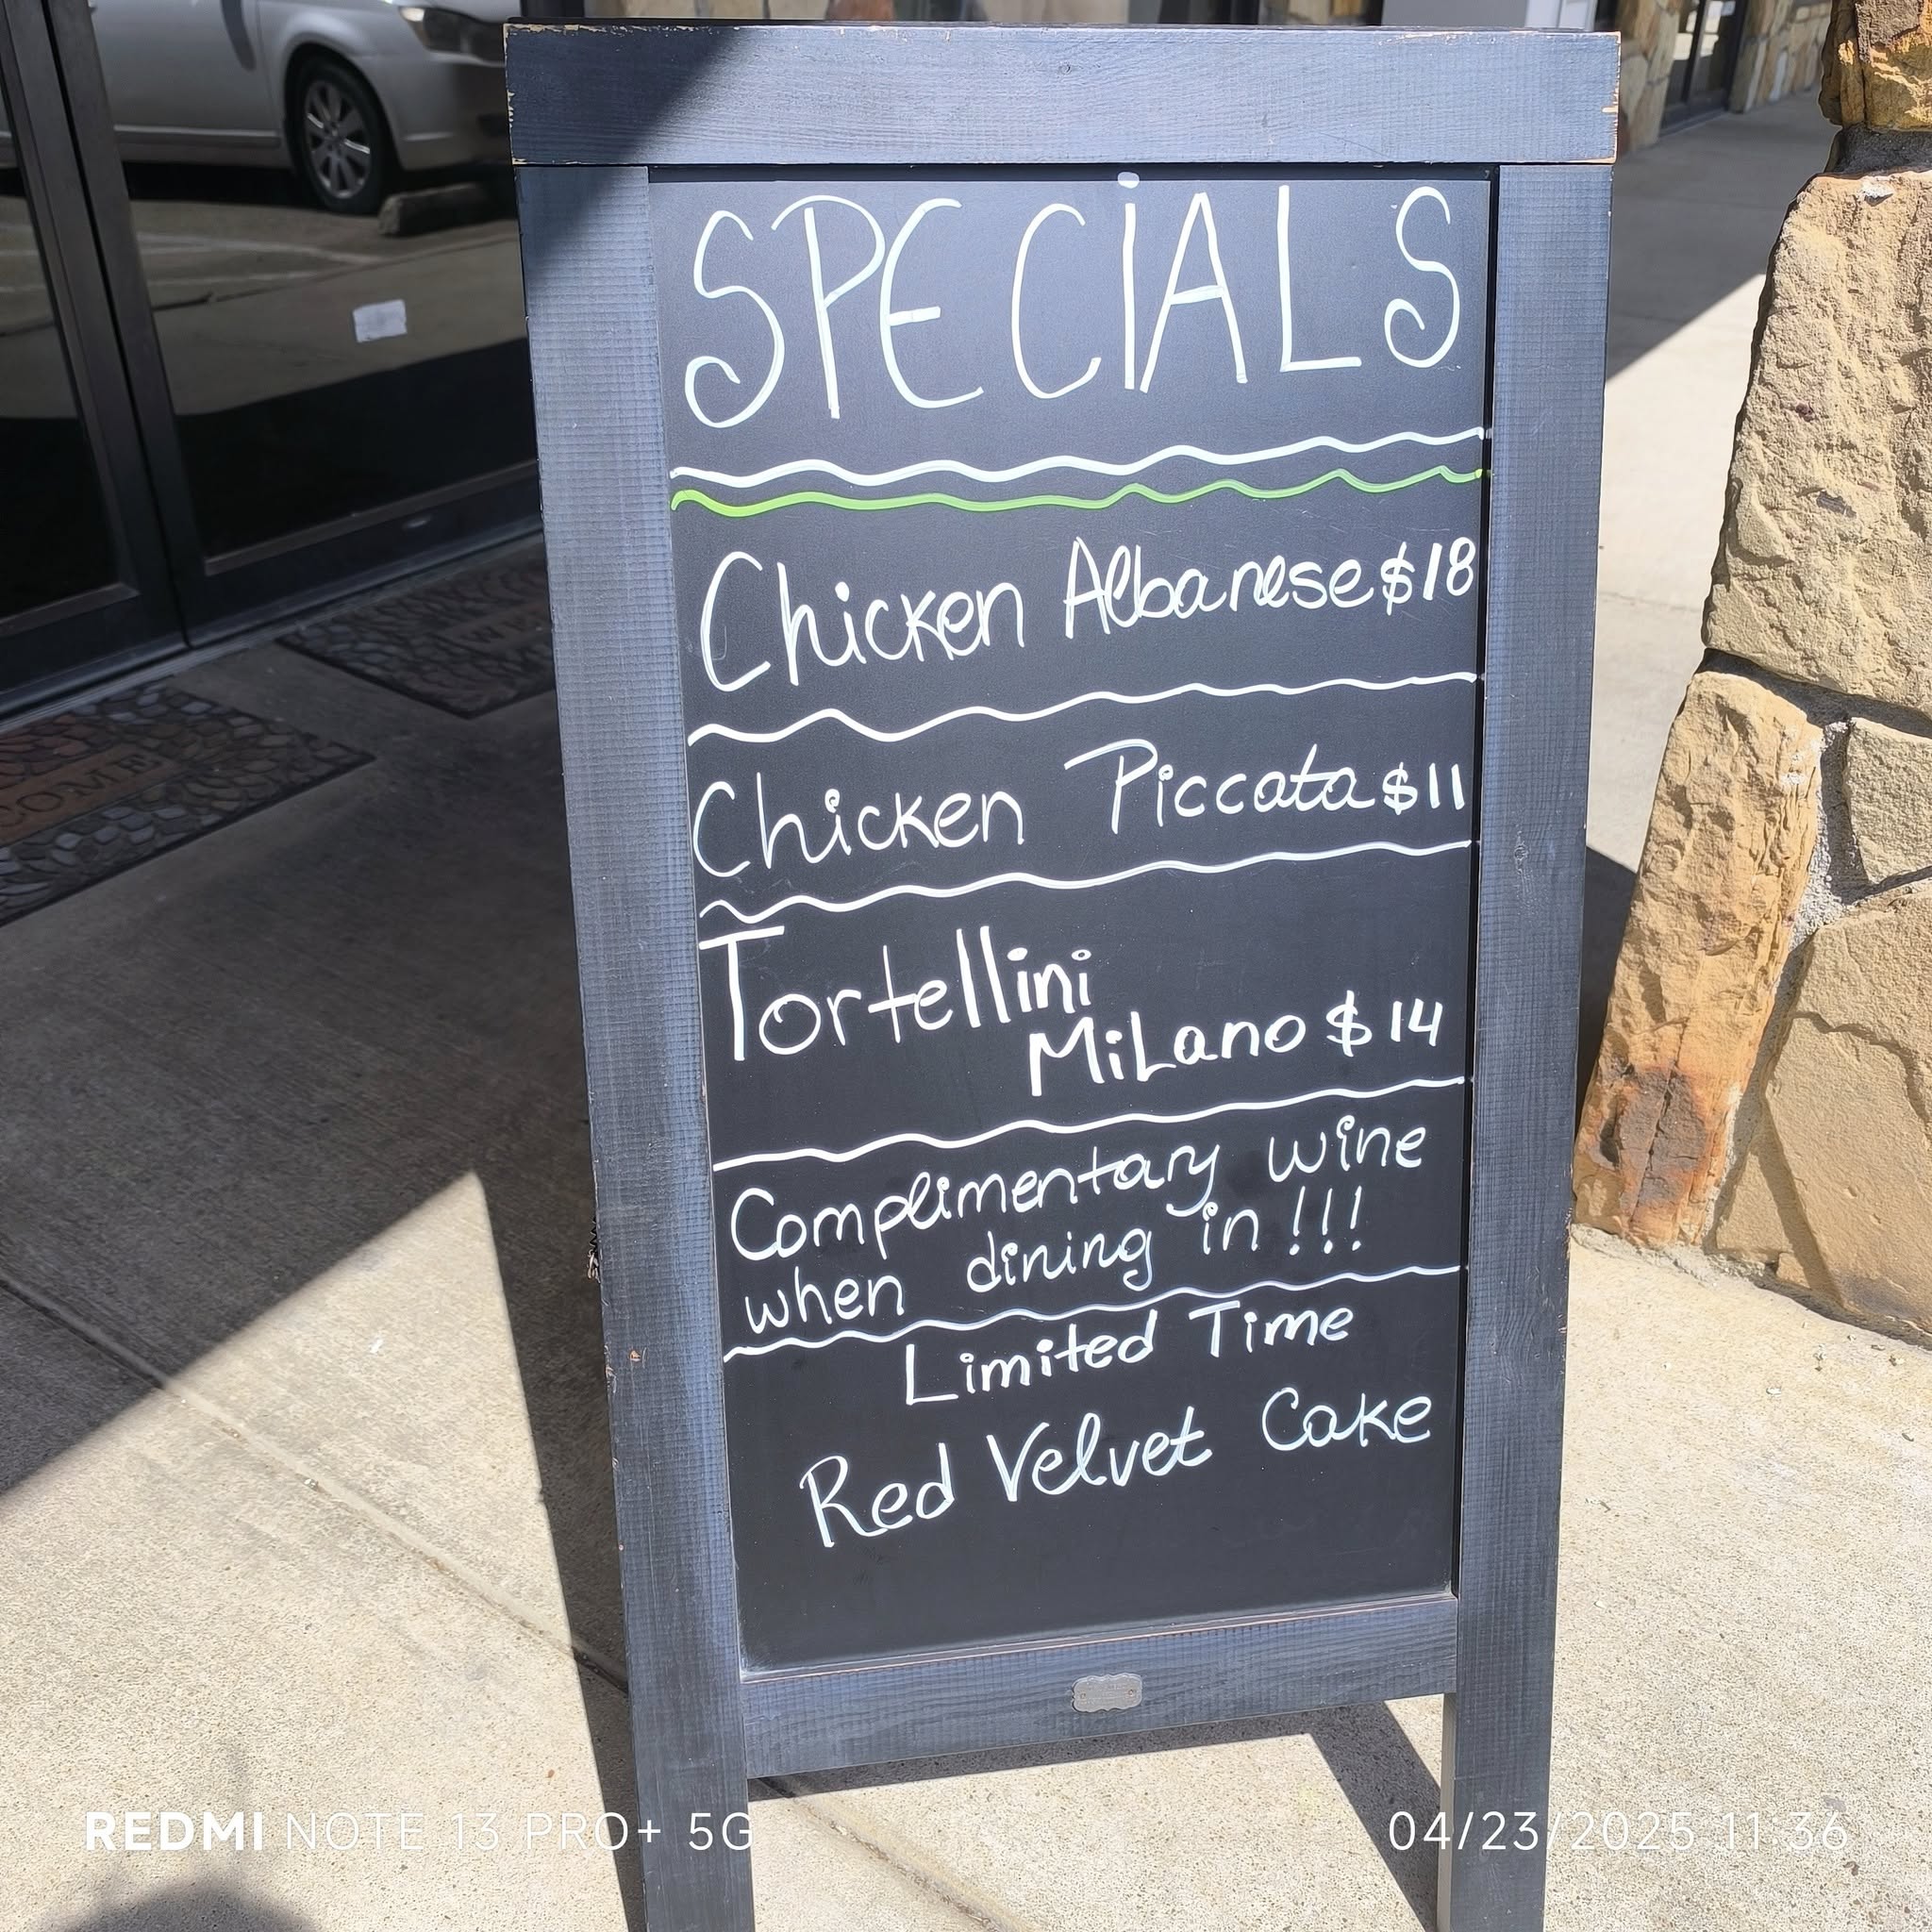 SPECiALS
Chicken Albanese $18
Chicken Piccata $11
Tortellini
MiLano $14
Complimentary wine
when dining in!!!
Limited Time
Red Velvet Cake
COME
REDMI NOTE 13 PRO+ 5G
04/23/2025 11:36